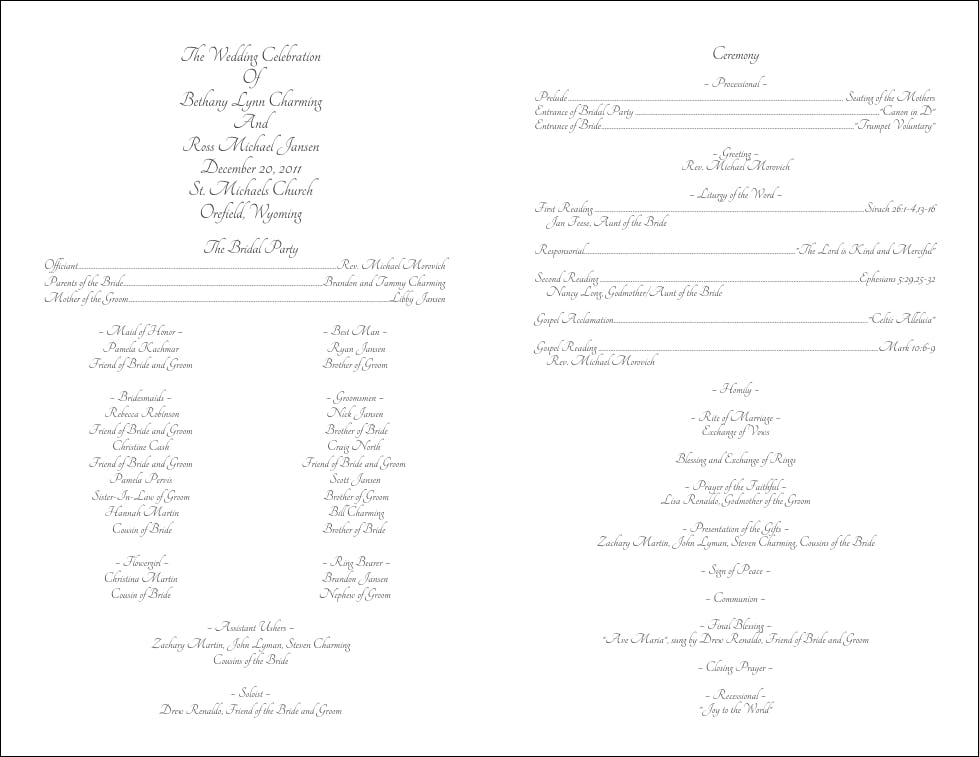 The Wedding Celebration
Of
Bethany Lynn Charming
And
Ross Michael Jansen
December 20, 2011
St. Michaels Church
Orefield, Wyoming
The Bridal Party
Officiant Rev. Michael Morovich
Parents of the Bride Brandon and Tammy Charming
Mother of the Groom Libby Jansen
~ Maid of Honor ~
Pamela Kachmar
Friend of Bride and Groom
~ Best Man ~
Ryan Jansen
Brother of Groom
~ Bridesmaids ~
Rebecca Robinson
Friend of Bride and Groom
Christine Cash
Friend of Bride and Groom
Pamela Pervis
Sister-In-Law of Groom
Hannah Martin
Cousin of Bride
~ Groomsmen ~
Nick Jansen
Brother of Bride
Craig North
Friend of Bride and Groom
Scott Jansen
Brother of Groom
Bill Charming
Brother of Bride
~ Flowergirl ~
Christina Martin
Cousin of Bride
~ Ring Bearer ~
Brandon Jansen
Nephew of Groom
~ Assistant Ushers ~
Zachary Martin, John Lyman, Steven Charming
Cousins of the Bride
~ Soloist ~
Drew Renaldo, Friend of the Bride and Groom
Ceremony
~ Processional ~
Prelude Seating of the Mothers
Entrance of Bridal Party "Canon in D"
Entrance of Bride "Trumpet Voluntary"
~ Greeting ~
Rev. Michael Morovich
~ Liturgy of the Word ~
First Reading Sirach 26:1-4,13-16
Jan Feese, Aunt of the Bride
Responsorial "The Lord is Kind and Merciful"
Second Reading Ephesians 5:29,25-32
Nancy Long, Godmother/Aunt of the Bride
Gospel Acclamation "Celtic Alleluia"
Gospel Reading Mark 10:6-9
Rev. Michael Morovich
~ Homily ~
~ Rite of Marriage ~
Exchange of Vows
Blessing and Exchange of Rings
~ Prayer of the Faithful ~
Lisa Renaldo, Godmother of the Groom
~ Presentation of the Gifts ~
Zachary Martin, John Lyman, Steven Charming, Cousins of the Bride
~ Sign of Peace ~
~ Communion ~
~ Final Blessing ~
"Ave Maria", sung by Drew Renaldo, Friend of Bride and Groom
~ Closing Prayer ~
~ Recessional ~
"Joy to the World"